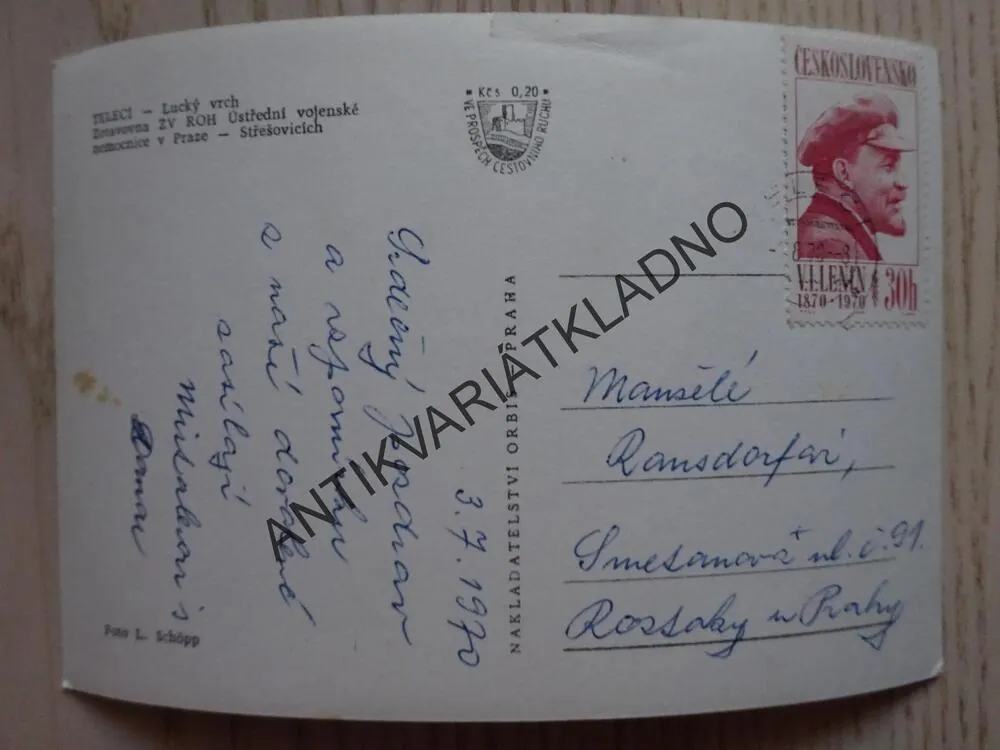 TELECÍ – Lucký vrch
Zotavovna ZV ROH Ústřední vojenské
nemocnice v Praze – Střešovicích
Kčs 0,20
VE PROSPĚCH CESTOVNÍHO RUCHU
ČESKOSLOVENSKO
V.I.LENIN
1870-1970
30h
3.7.1970
Srdečný pozdrav
a vzpomínku
z naší dovolené
zasílají
Foto L. Schöpp
NAKLADATELSTVÍ ORBIS – PRAHA
Manželé
Ransdorfovi,
Smetanova ul. č. 91.
Roztoky u Prahy
ANTIKVARIÁTKLADNO